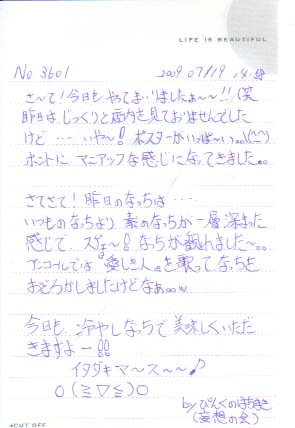 LIFE IS BEAUTIFUL
No 3601 2009 07/19 14:58
さ〜て!今日も やってまいりましたぁ〜〜!!(笑
昨日は じっくりと店内を見ておりませんでした
けど… いや〜! ポスターがいっぱ〜い。。(^^)
ホントに マニアックな感じになってきました。。
さてさて! 昨日のなっちは・・・
いつものなっちより 素のなっちが一層深まった
感じで、スゲェ〜! なっちが観れました〜。。
アンコールでは『愛しき人』を歌って、なっちを
おどろかしましたけどなぁ。。w
今日も、冷やしなっちで美味しくいただ
きますよー!!
イタダキマ〜ス〜〜♪
O(≧▽≦)O
by ぴんくのはちまき
(妄想の会)
CUT OFF